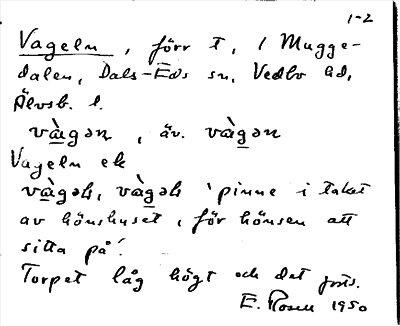 1-2
Vageln, förr t, i Mugge-
dalen, Dals-Eds sn, Vedbo hd,
Älvsb. l.
và̱gən, äv. vàg̱ən
Vageln ek
và̱gəls, vàg̱əls 'pinne i taket
av hönshuset, för hönsen att
sitta på'.
Torpet låg högt och det forts.
E. Rosell 1950